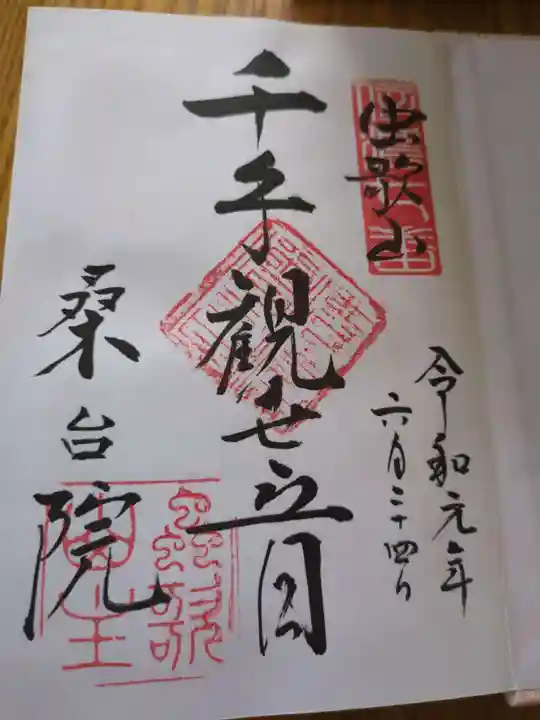 虫歌山
千手観世音
桑台院
令和元年
六月二十四日